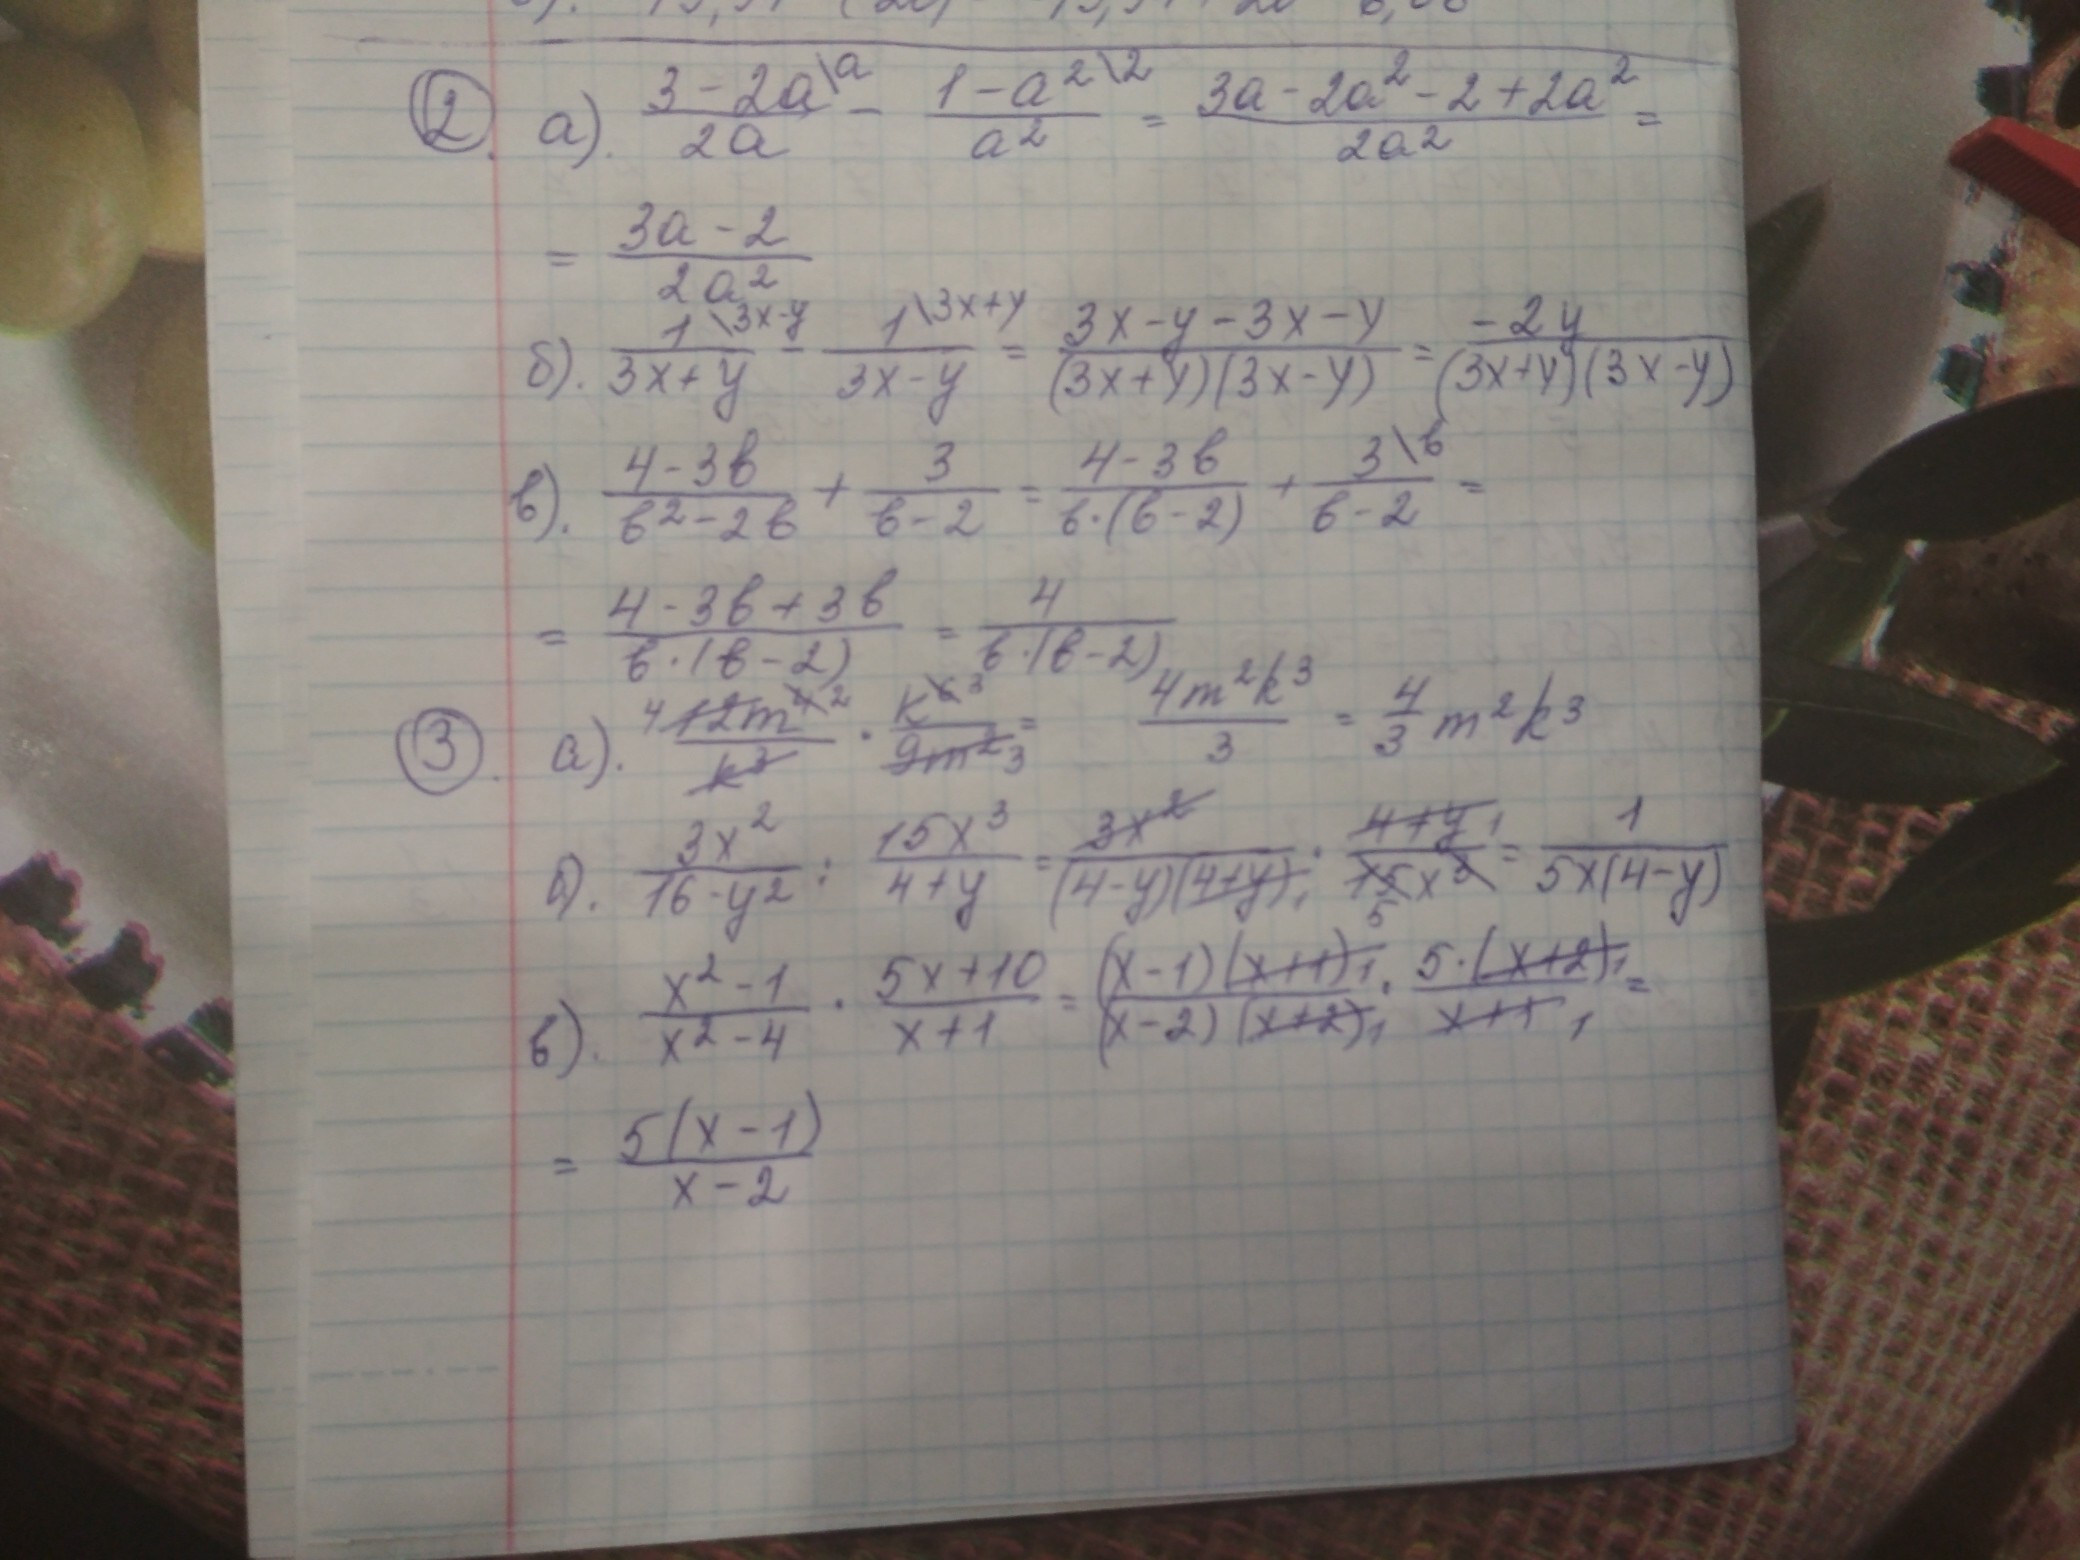 2. а). (3-2a\a)/(2a) - (1-a²\2)/(a²) = (3a-2a²-2+2a²)/(2a²) =
= (3a-2)/(2a²)
б). (1\3x-y)/(3x+y) - (1\3x+y)/(3x-y) = (3x-y-3x-y)/((3x+y)(3x-y)) = (-2y)/((3x+y)(3x-y))
в). (4-3b)/(b²-2b) + 3/(b-2) = (4-3b)/(b·(b-2)) + (3\b)/(b-2) =
= (4-3b+3b)/(b·(b-2)) = 4/(b·(b-2))
3. а). 4 (12m⁴ ²)/(k³) · (k⁶ ³)/(9m² 3) = (4m²k³)/3 = 4/3 m²k³
б). (3x²)/(16-y²) : (15x³)/(4+y) = (3x²)/((4-y)(4+y) 1) · (4+y 1)/(15x³ 5) = 1/(5x(4-y))
в). (x²-1)/(x²-4) · (5x+10)/(x+1) = ((x-1)(x+1) 1)/((x-2)(x+2) 1) · (5·(x+2) 1)/(x+1 1) =
= (5(x-1))/(x-2)